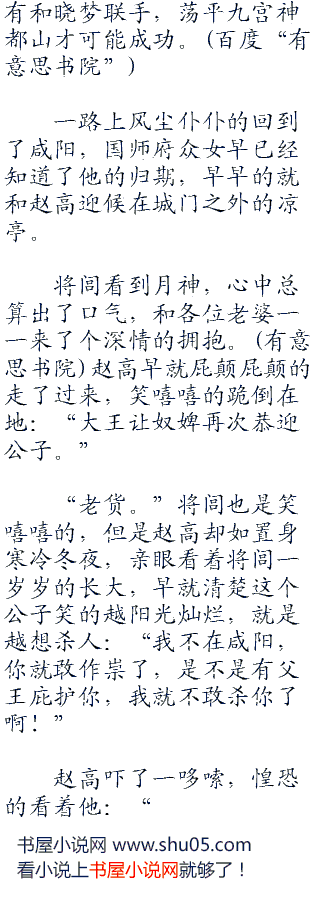 有和晓梦联手，荡平九宫神
都山才可能成功。(百度“有
意思书院”)
一路上风尘仆仆的回到
了咸阳，国师府众女早已经
知道了他的归期，早早的就
和赵高迎候在城门之外的凉
亭。
将闾看到月神，心中总
算出了口气，和各位老婆一
一来了个深情的拥抱。(有意
思书院)赵高早就屁颠屁颠的
走了过来，笑嘻嘻的跪倒在
地：“大王让奴婢再次恭迎
公子。”
“老货。”将闾也是笑
嘻嘻的，但是赵高却如置身
寒冷冬夜，亲眼看着将闾一
岁岁的长大，早就清楚这个
公子笑的越阳光灿烂，就是
越想杀人：“我不在咸阳，
你就敢作祟了，是不是有父
王庇护你，我就不敢杀你了
啊！”
赵高吓了一哆嗦，惶恐
的看着他：“
书屋小说网 www.shu05.com
看小说上书屋小说网就够了！